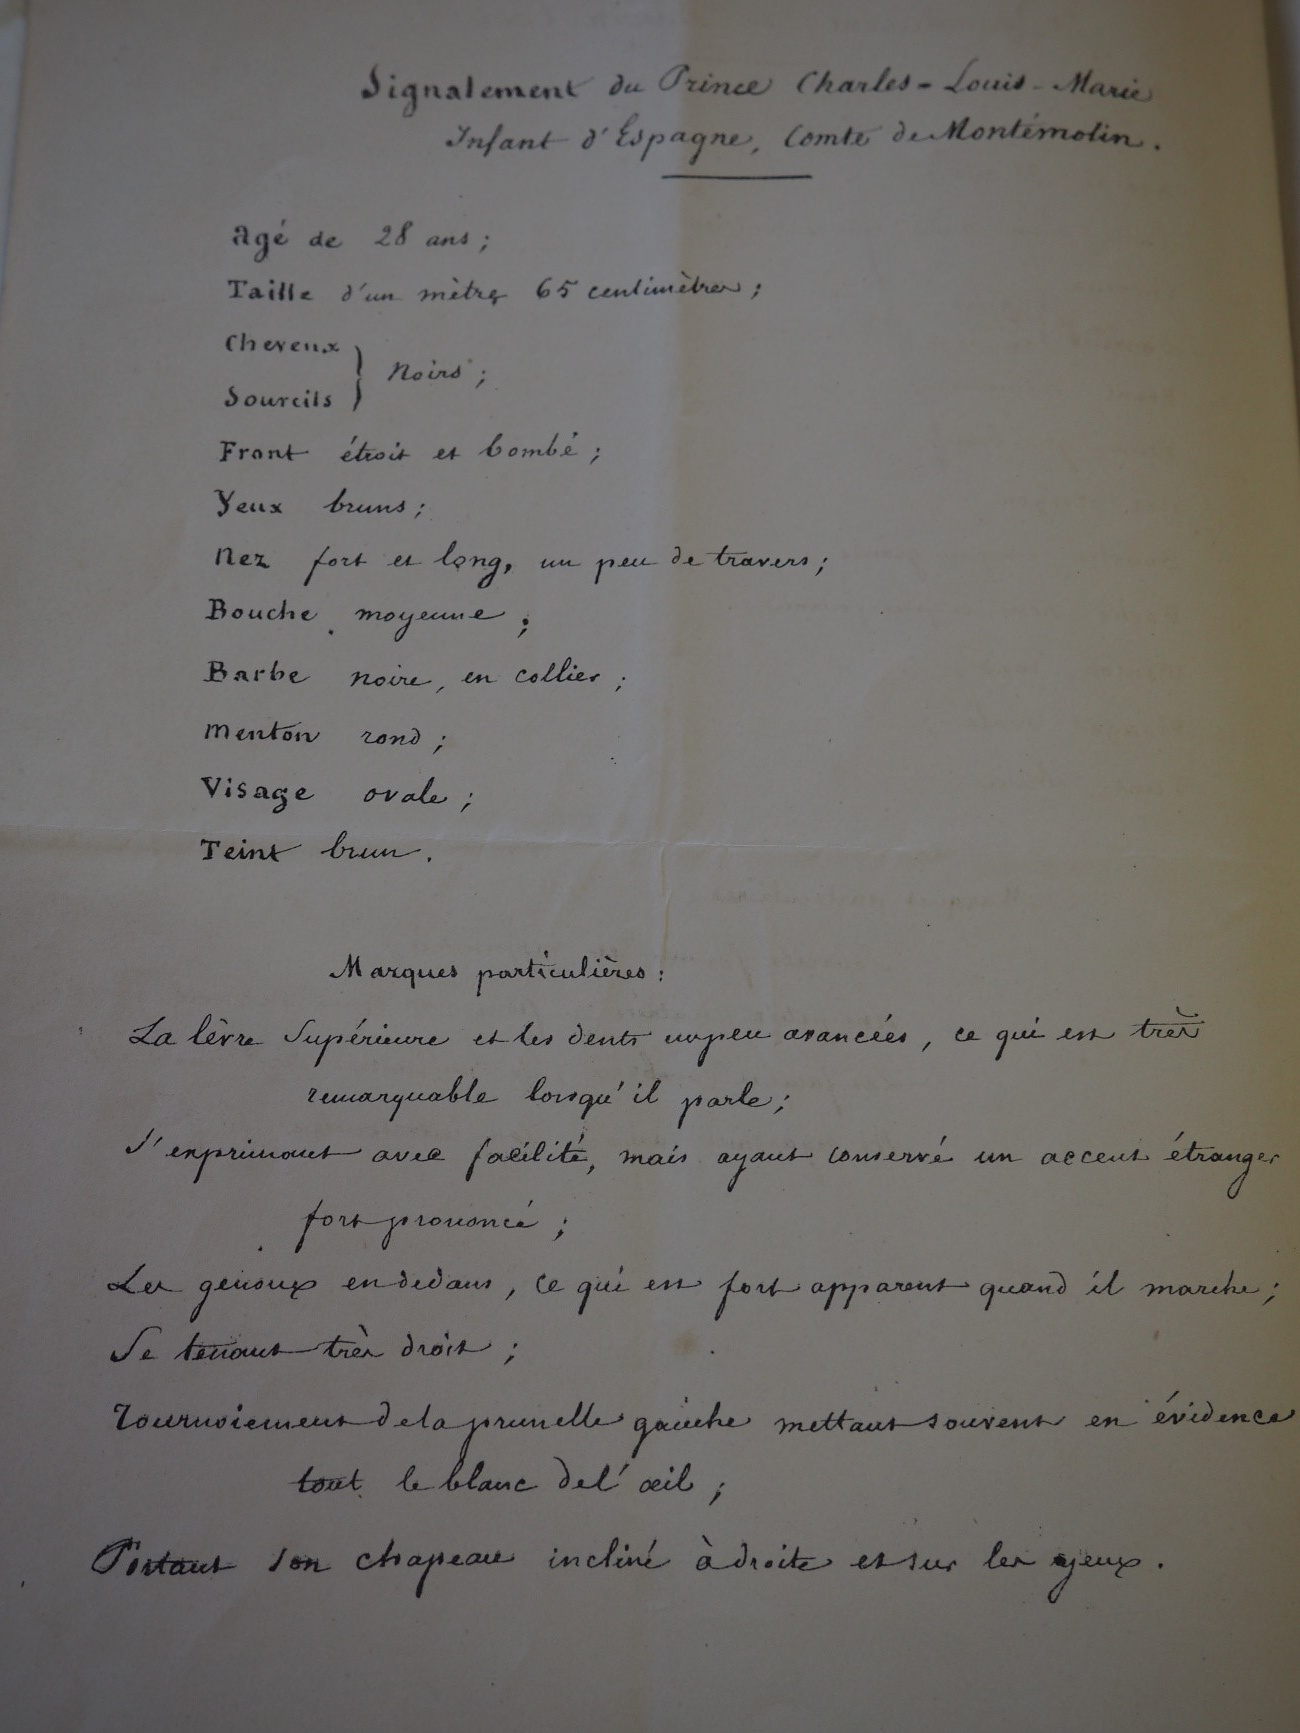 Signalement du Prince Charles-Louis-Marie
Infant d'Espagne, Comte de Montémolin.
Agé de 28 ans ;
Taille d'un mètre 65 centimètres ;
Cheveux
Sourcils } Noirs ;
Front étroit et bombé ;
Yeux bruns ;
Nez fort et long, un peu de travers ;
Bouche moyenne ;
Barbe noire, en collier ;
Menton rond ;
Visage ovale ;
Teint brun.
Marques particulières :
La lèvre Supérieure et les dents un peu avancées, ce qui est très
remarquable lorsqu'il parle ;
S'exprimant avec facilité, mais ayant conservé un accent étranger
fort prononcé ;
Les genoux en dedans, ce qui est fort apparent quand il marche ;
Se tenant très droit ;
Tournoiement de la prunelle gauche mettant souvent en évidence
tout le blanc de l'œil ;
Portant son chapeau incliné à droite et sur les yeux.